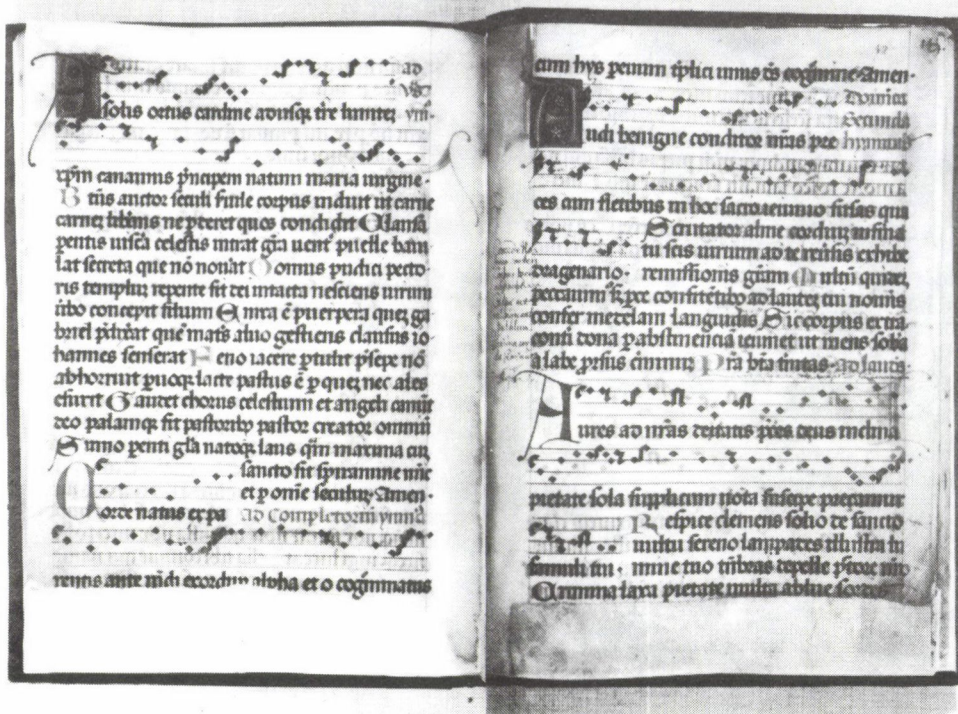 ad
A solis ortus cardine adusq; tre limitez
xpm canamus pncipem natum maria uirgine.
Btus auctor seculi suile corpus induit ut carne
carnez libans ne pderet quos condidit Clausa
pentis uiscera celestis intrat gra uent puelle baiu
lat secreta que nō nouat Domus pudici pecto
ris templuz repente fit dei intacta nesciens uirum
ubo concepit filium Enixa ē puerpera quez ga
briel pdixat que mats aluo gestiens clausus io
hannes senserat Feno iacere ptulit psepe nō
abhorruit puoq; lacte pastus ē p quez nec ales
esurit Gaudet chorus celestium et angeli canut
deo palamq; fit pastorib pastor creator omniu
Sumo penti gla natoq; laus qm maxima cu
sancto sit spiramine nuc
et p omne seculuz Amen.
Corde natus ex pa ad Completoriu ymn
rentis ante mudi exordiu alpha et o cognminatus
cum hys pennium tplici unus es cognmine Amen.
Dominica
Secunda
Audi benigne conditor nras pre hymnus
ces cum fletibus in hoc sacro ieiunio fusas qua
Scrutator alme cordiuz infima
tu scis uirium ad te reusis exhibe
dragenario. remissionis gram Multu quidez
peccauim sz pce confitetib ad laudez tui nomis
confer medelam languidis Sic corpus extra
conti dona p abstinencia ieiunet ut mens sobia
a labe psus cminuz Pra bta tinitas ad laudes
Aures ad nras deitatis pces deus inclina
pietate sola supplicum uota suscipe precamur
Respice clemens solio de sancto
uultu sereno lampades illustra lu
famuli tui. mine tuo tnebras depelle pctore nro
Crimina laxa pietate multa ablue sordes